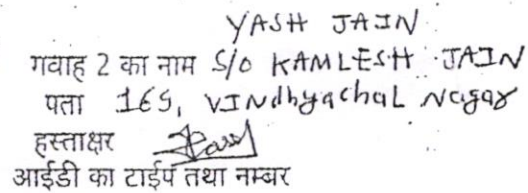 YASH JAIN
गवाह 2 का नाम S/O KAMLESH JAIN
पता 165, VINdhyachaL Nagar
हस्ताक्षर
आईडी का टाईप तथा नम्बर